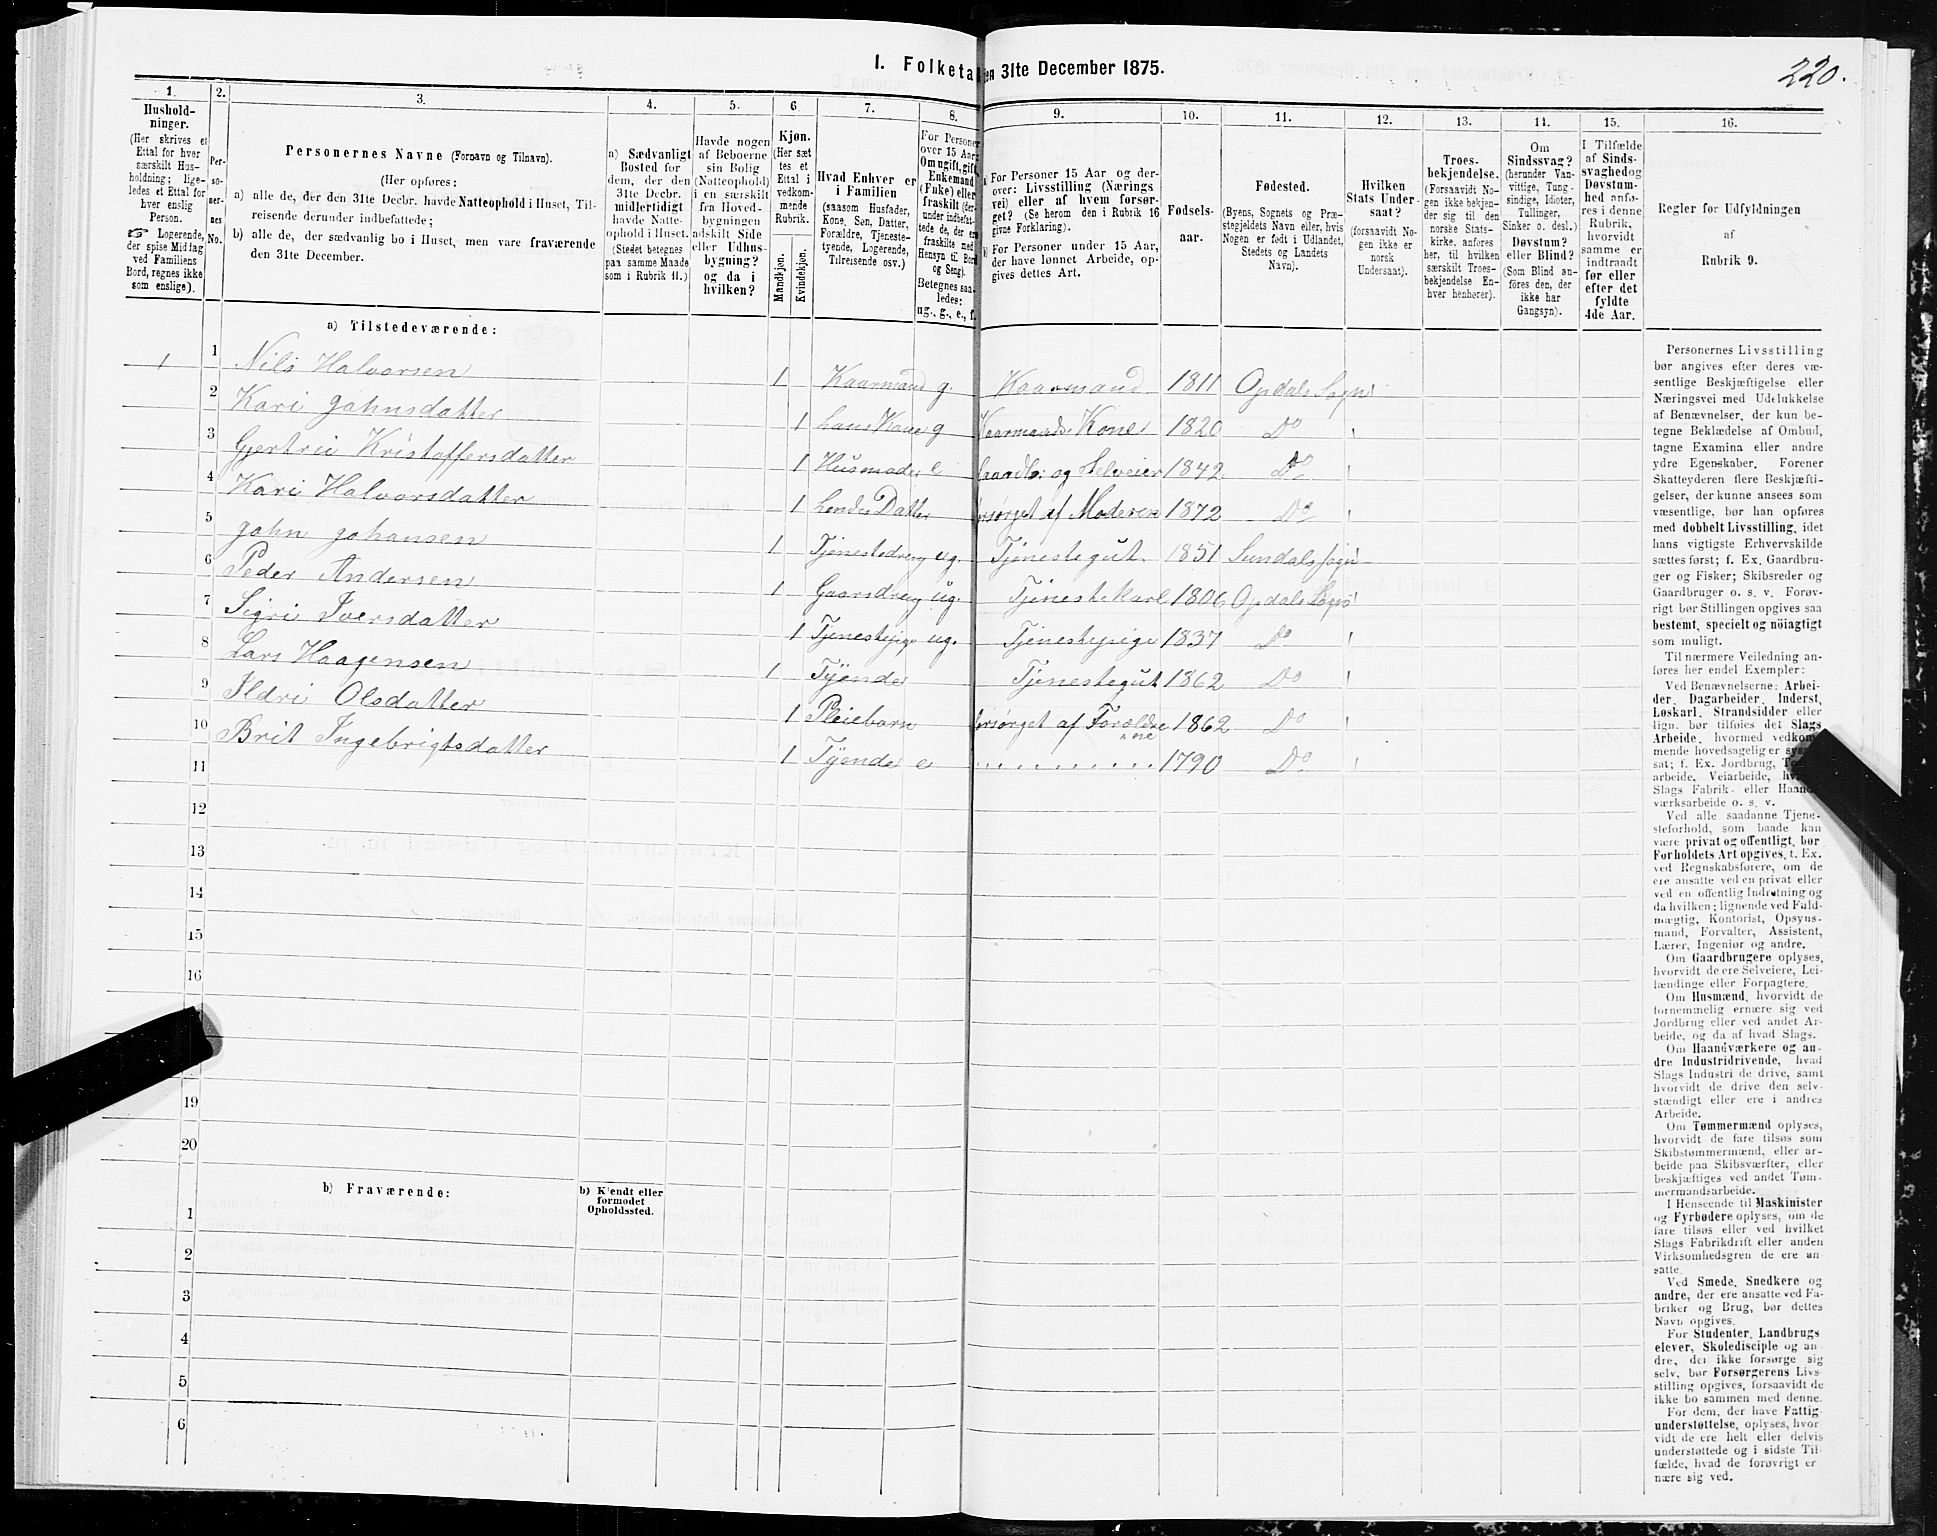 220.
I. Folketa
en 31te December 1875.
1.
2.
3.
4.
5.
6.
7.
8.
9.
10.
11.
12.
13.
14.
15.
16.
Hushold-
ninger.
(Her skrives et
Ettal for hver
særskilt Hus-
holdning; lige-
ledes et Ettal for
hver enslig
Person.
☞ Logerende,
der spise Midlag
ved Familiens
Bord, regnes ikke
som enslige).
Per-
so-
ner-
nes
No.
Personernes Navne (Fornavn og Tilnavn).
(Her opføres:
a) alle de, der den 31te Decbr. havde Natteophold i Huset, Til-
reisende derunder indbefattede;
b) alle de, der sædvanlig bo i Huset, men vare fraværende
den 31te December.
a) Sædvanligt
Bosted for
dem, der den
31te Decbr.
midlertidigt
havde Natte-
ophold i Huset.
(Stedet betegnes
paa samme Maade
som i Rubrik 11.)
Havde nogen
af Beboerne
sin Bolig
(Natteophold)
i en særskilt
fra Hoved-
bygningen
adskilt Side
eller Udhus-
bygning?
og da i
hvilken?
Kjøn.
(Her sæt
tes et
Ettal i
vedkom-
mende
Rubrik.
Mandkjøn.
Kvindekjøn.
Hvad Enhver er
i Familien
(saasom Husfader,
Kone, Søn, Datter,
Forældre, Tjeneste-
tyende, Logerende,
Tilreisende osv.)
For Personer
over 15 Aar:
Om ugift, gift,
Enkemand
(Enke) eller
fraskilt (der-
under indbefat-
tede de, der ere
fraskilte med
Hensyn til Bord
og Seng).
Betegnes saa-
ledes:
ug., g., e., f.
a For Personer 15 Aar og der-
over: Livsstilling (Nærings
vei) eller af hvem forsør-
get? (Se herom den i Rubrik 16
givne Forklaring).
b) For Personer under 15 Aar,
der have lønnet Arbeide, op-
gives dettes Art.
Fødsels-
aar.
Fødested.
(Byens, Sognets og Præ-
stegjeldets Navn eller, hvis
Nogen er født i Udlandet,
Stedets og Landets
Navn).
Hvilken
Stats Under-
saat?
(forsaavidt No-
gen ikke er
norsk
Undersaat).
Troes-
bekjendelse.
(Forsaavidt No-
gen ikke bekjen-
der sig til den
norske Stats-
kirke, anføres
her, til hvilken
særskilt Troes-
bekjendelse En-
hver henhører).
Om
Sindssvag?
(herunder Van-
vittige, Tung-
sindige, Idioter,
Tullinger,
Sinker o. desl.)
Døvstum?
eller Blind?
(Som Blind an-
föres den, der
ikke har
Gangsyn).
I Tilfælde
af Sinds-
svaghed og
Døvstum-
hed anfø-
res i denne
Rubrik,
hvorvidt
samme er
indtraadt
før eller
efter det
fyldte
4de Aar.
Regler for Udfyldningen
af
Rubrik 9.
a) Tilstedeværende:
1 1 Nils Halvorsen 1 Kaarmand g. Kaarmand 1811 Opdals Sogn
2 Kari Johnsdatter 1 hans Kone g Kaarmands Kone 1820 Do
3 Gjertrii Kristoffersdatter 1 Husmoder e Gaardb: og Selveier 1842 Do
4 Kari Halvorsdatter 1 hendes Datter forsørget af Moderen 1872 Do
5 John Johansen 1 Tjenestedreng ug. Tjenestegut. 1851 Sundals Sogn
6 Peder Andersen 1 Gaarsdreng ug. Tjenestekarl 1806 Opdals Sogn
7 Sigri Iversdatter 1 Tjenestepige ug. Tjenestepige 1837 Do
8 Lars Haagensen 1 Tyende Tjenestegut 1862 Do
9 Ildri Olsdatter 1 Pleiebarn forsørget af Foreldre
ne 1862 Do
10 Brit Ingebrigtsdatter 1 Tyende e 1790 Do
11
12
13
14
15
16
19
20
b) Fraværende:
b) Kjendt eller
formodet
Opholdssted.
1
2
3
4
5
6
Personernes Livsstilling
bør angives efter deres væ-
sentlige Beskjæftigelse eller
Næringsvei med Udelukkelse
af Benævnelser, der kun be-
tegne Beklædelse af Ombud,
tagne Examina eller andre
ydre Egenskaber. Forener
Skatteyderen flere Beskjæfti-
gelser, der kunne ansees som
væsentlige, bør han opføres
med dobbelt Livsstilling, idet
hans vigtigste Erhvervskilde
sættes først; f. Ex. Gaardbru-
ger og Fisker; Skibsreder og
Gaardbruger o. s. v. Forøv-
rigt bør Stillingen opgives saa
bestemt, specielt og nöiagtigt
som muligt.
Til nærmere Veiledning an-
føres her endel Exempler:
Ved Benævnelserne: Arbei-
der, Dagarbeider, Inderst,
Løskarl, Strandsidder eller
lign. bør tilføies det Slags
Arbeide, hvormed vedkom-
mende hovedsagelig er syssel
sat; f. Ex. Jordbrug,
arbeide, Veiarbeide,
Slags Fabrik- eller Haand-
værksarbeide o. s. v.
Ved alle saadanne Tjene-
steforhold, som baade kan
være privat og offentligt, bør
Forholdets Art opgives, t. Ex.
ved Regnskabsførere, om de
ere ansatte ved en privat eller
ved en offentlig Indretning og
da hvilken; lignende ved Fuld-
mægtig, Kontorist, Opsyns-
mand, Forvalter, Assistent,
Lærer, Ingeniør og andre.
Om Gaardbrugere oplyses,
hvorvidt de ere Selveiere, Lei-
lændinge eller Forpagtere.
Om Husmænd, hvorvidt de
fornemmelig ernære sig ved
Jordbrug eller ved andet Ar-
beide, og da af hvad Slags.
Om Haandværkere og an-
dre Industridrivende, hvad
Slags Industri de drive, samt
hvorvidt de drive den selv-
stændigt eller ere i andres
Arbeide.
Om Tømmermænd oplyses,
hvorvidt de fare tilsøs som
Skibstømmermænd, eller ar-
beide paa Skibsværfter, eller
beskjæftiges ved andet Tøm-
mermandsarbeide.
I Henseende til Maskinister
og Fyrbødere oplyses, om de
fare tilsøs eller ved hvilket
Slags Fabrikdrift eller anden
Virksomhedsgren de ere an-
satte.
Ved Smede, Snedkere og
andre, der ere ansatte ved Fa-
briker og Brug, bør dettes
Navn opgives.
For Studenter, Landbrugs
elever, Skoledisciple og an-
dre, der ikke forsørge sig
selv, bør Forsørgerens Livs-
stilling opgives, forsaavidt de
ikke bo sammen med denne.
For dem, der have Fattig-
understøttelse, oplyses, hvor
vidt de ere helt eller delvis
understøttede og i sidste Til-
fælde, hvad de forøvrigt er
nære sig ved.